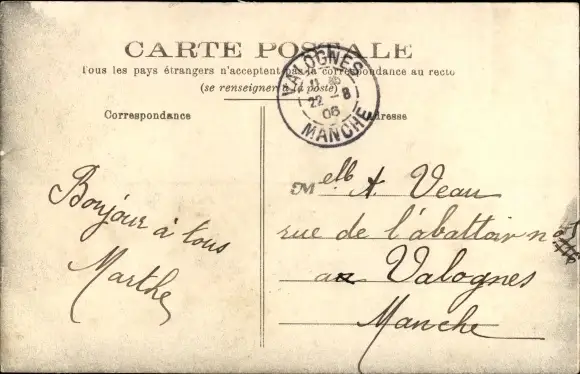 CARTE POSTALE
Tous les pays étrangers n'acceptent pas la correspondance au recto
(se renseigner à la poste)
VALOGNES
22 - 8
06
MANCHE
Correspondance
Adresse
Bonjour à tous
Marthe
Melle A. Veau
rue de l'abattoir n
a Valognes
Manche